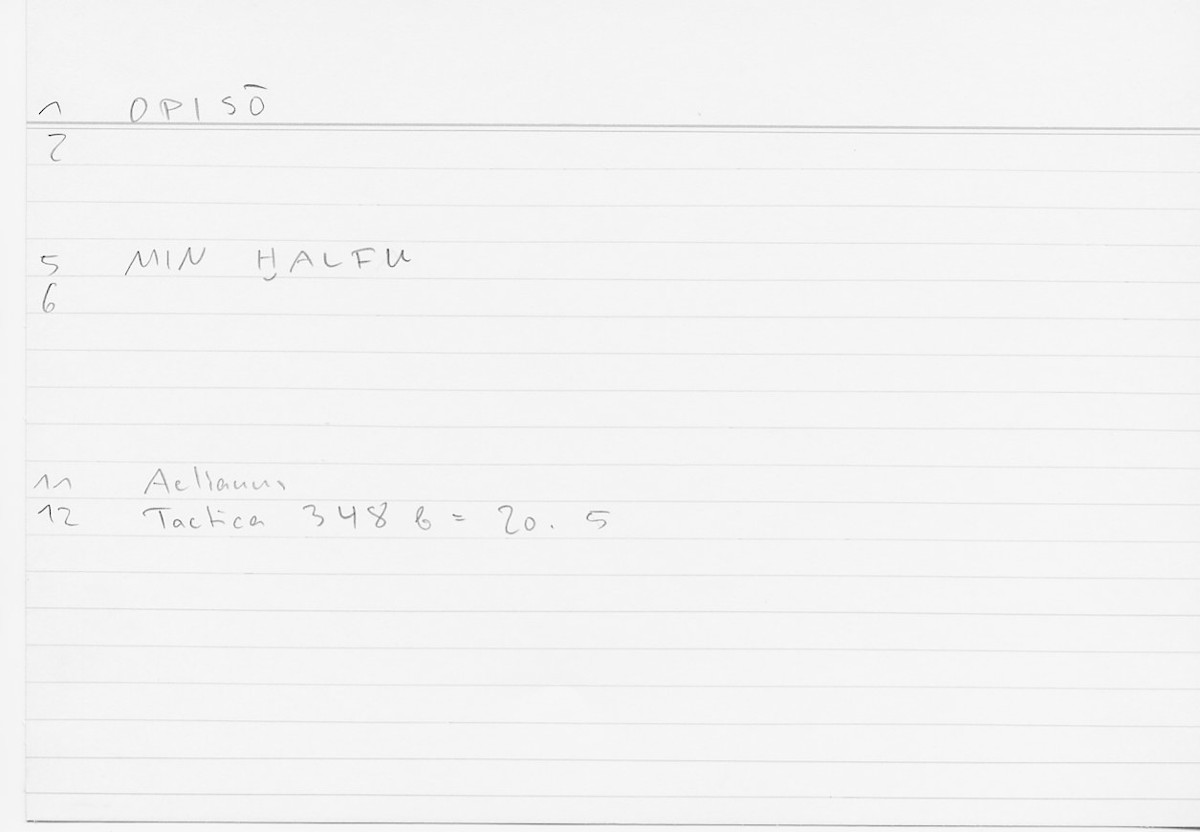 1 OPISŌ
2
5 MIN ḪALFU
6
11 Aelianus
12 Tactica 348 b = 20. 5